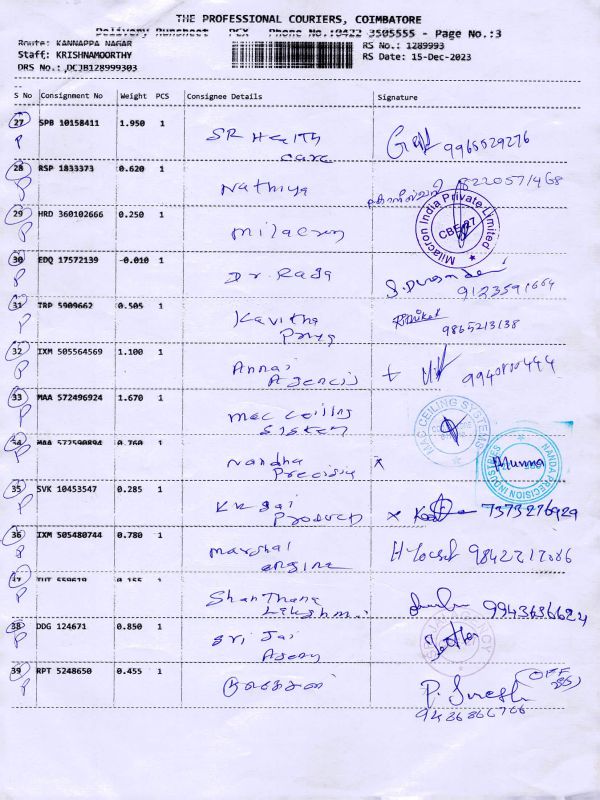 THE PROFESSIONAL COURIERS, COIMBATORE
Delivery Runsheet PCX Phone No.:0422 3505555 - Page No.:3
Route: KANNAPPA NAGAR RS No.: 1289993
Staff: KRISHNAMOORTHY RS Date: 15-Dec-2023
DRS No.: DCJB128999303
S No Consignment No Weight PCS Consignee Details Signature
27 SPB 10158411 1.950 1 SR Health
P care 9965529276
28 RSP 1833373 0.620 1
P Nathiya
29 HRD 360102666 0.250 1 Milacron India Private Limited
P Milacron CBE-27
30 EDQ 17572139 -0.010 1 Dr. Raja
P
31 TRP 5909662 0.505 1 Kavitha
P Priya 9865213138
32 IXM 505564569 1.100 1 Annai
P Agencis
33 MAA 572496924 1.670 1 Mac Ceiling MAC CEILING SYSTEMS
P System
34 MAA 572590894 0.760 1 Nandha NANDA PRECISION INDUSTRIES
P Precision x Munna
35 SVK 10453547 0.285 1 KK Sai
P Product x 7373276929
36 IXM 505480744 0.780 1 Marshal
P engine
37 TUT 559619 0.155 1 Shanthana
P Lakshmi 9943636624
38 DDG 124671 0.850 1 Sri Jai
P Agency
39 RPT 5248650 0.455 1 P. Suresh
P